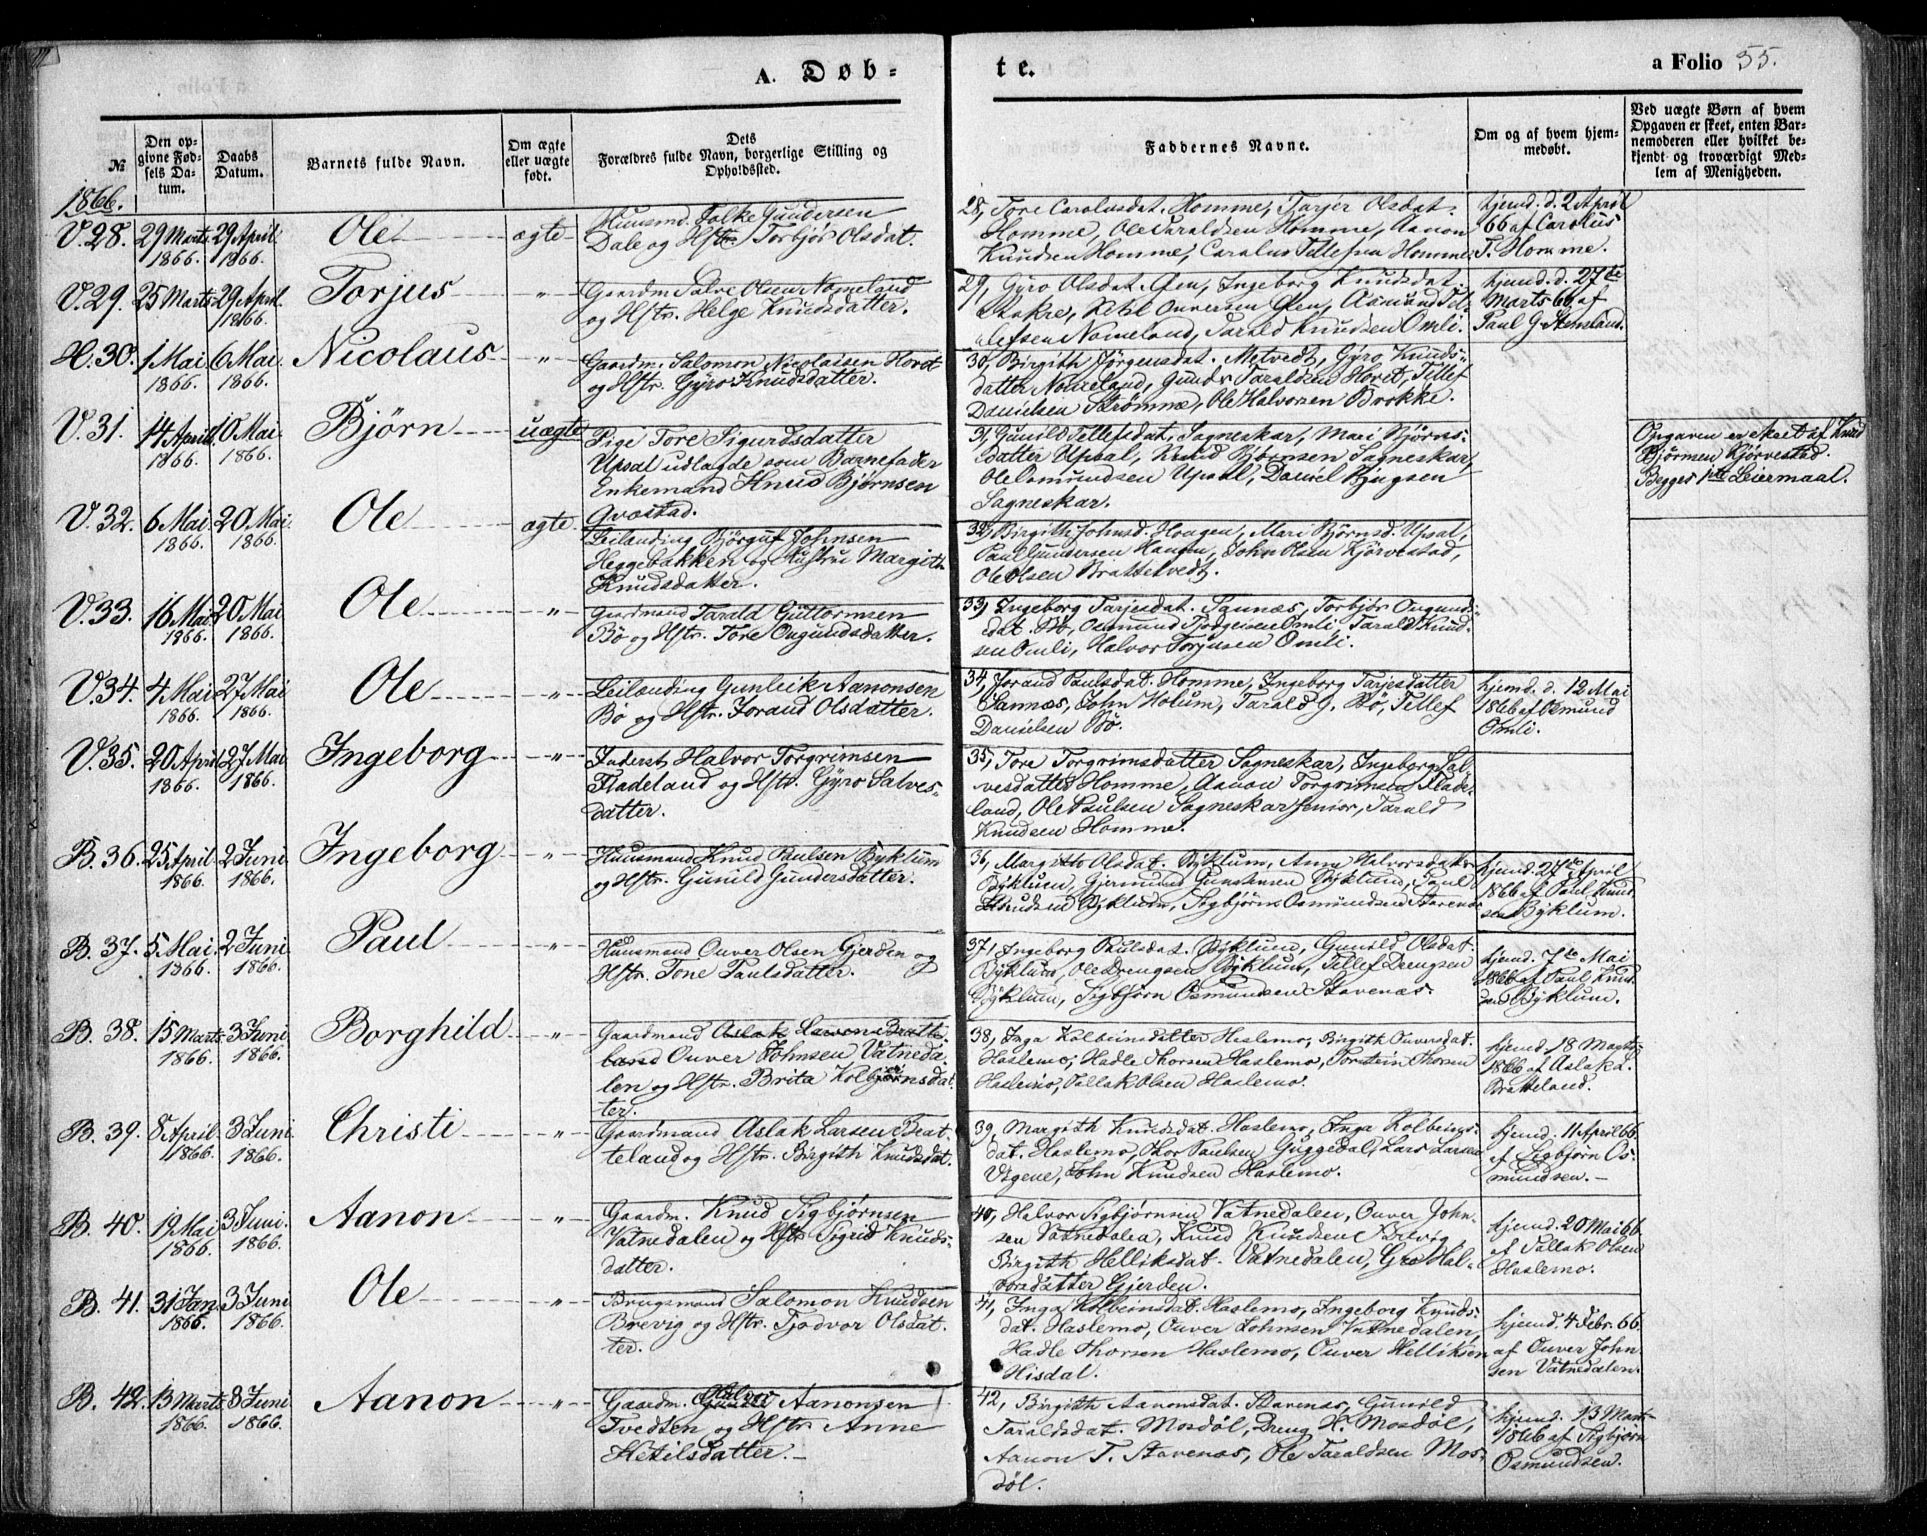 A. Døb-
te.
a Folio 55.
№
Den op-
givne Fød-
sels Da-
tum.
Daabs
Datum.
Barnets fulde Navn.
Om ægte
eller uægte
født.
Dets
Forældres fulde Navn, borgerlige Stilling og
Opholdssted.
Faddernes Navne.
Om og af hvem hjem-
medøbt.
Ved uægte Børn af hvem
Opgaven er skeet, enten Bar-
nemoderen eller hvilket be-
kjendt og troværdigt Med-
lem af Menigheden.
1866.
V. 28. 29 Marts 1866. 29 April 1866. Ole ægte
Huusmd. Folke Gundersen
Dale og Hstr. Torbjør Olsdat.
28, Tore Carolusdat. Homme, Tarjer Olsdat.
Homme, Ole Taraldsen Homme, Aanon
Knudsen Homme, Carolus Tellefsen Homme.
hjemd. d. 2 April
66 af Carolus
T. Homme.
V. 29. 25 Marts 29 April 1866. Torjus "
Gaardm. Salve Olsen Nomeland
og Hstr. Helge Knudsdatter.
29, Gyro Olsdat. Oen, Ingeborg Knudsdat.
Rakre, Ketil Ouversen Oen, Asmund Tel-
lefsen Nomeland, Tarald Knudsen Omli.
hjemd. d. 27te
Marts 66 af
Paul G.
H. 30. 1 Mai 1866. 6 Mai 1866. Nicolaus "
Gaardm. Salomon Nicolaisen Hovet
og Hstr. Gyro Knudsdatter.
30, Birgith Jørgensdat. Metvedt, Gyro Knuds-
datter Nomeland, Gunder Taraldsen Hovet, Tellef
Danielsen Strømme, Ole Halvorsen Brokke.
V. 31. 14 April 1866. 10 Mai 1866. Bjørn uægte
Pige Tore Sigurdsdatter
Upsal udlagde som Barnefader
Enkemand Knud Bjørnsen
31, Gunild Tellefsdat. Sagneskar, Mari Bjørns-
datter Upsal, Knud Bjørnsen Sagneskar,
Ole Osmundsen Upsal, Daniel
Sagneskar.
Opgaven er skeet af Knud
Bjørnsen Kjørvestad.
Begges 1ste Leiermaal.
V. 32. 6 Mai 1866. 20 Mai 1866. Ole ægte
Leilænding Bjørguf Johnsen
Heggebakken og Hustru Margith
Knudsdatter.
32, Birgith Johnsd. Haugen, Mari Bjørnsd. Upsal,
Paul Gundersen Haugen, John Olsen Kjørvestad,
Ole Olsen Brattetvedt.
V. 33. 16 Mai 1866. 20 Mai 1866. Ole "
Gaardmand Tarald Guttormsen
Bø og Hstr. Tore Ougundsdatter.
33, Ingeborg Tarjesdat. Sannæs, Torbjør Ougunds-
dat. Bø, Osmund Torgeisen Omli, Tarald Knud-
sen Omli, Halvor Torjusen Omli.
V. 34. 4 Mai 1866. 27 Mai 1866. Ole "
Leilænding Gunleik Aanonsen
Bø og Hstr. Jorand Olsdatter.
34, Jorand Paulsdat. Homme, Ingeborg Tarjesdatter
Sannæs, John Holum, Tarald G. Bø, Tellef
Danielsen Bø.
hjemd. d. 12 Mai
1866 af Osmund
Omli.
V. 35. 20 April 1866. 27 Mai 1866. Ingeborg "
Inderst Halvor Torgrimsen
Fladeland og Hstr. Gyro Salves-
datter.
35, Tore Torgrimsdatter Sagneskar, Ingeborg Sal-
vesdatter Homme, Aanon Torgrimsen Flade-
land, Ole Paulsen Sagneskar senior, Tarald
Knudsen Homme.
B. 36. 25 April 1866. 2 Juni 1866. Ingeborg "
Huusmand Knud Paulsen Byklum
og Hstr. Gunild Gundersdatter.
36, Margitto Olsdat. Byklum, Anne Halvorsdat.
Byklum, Gjermund Gunstensen Byklum, Paul
Knudsen Byklum, Sigbjørn Osmundsen Stavenæs
hjemd. 27de April
1866 af Paul Knud-
sen Byklum.
B. 37. 5 Mai 1866. 2 Juni 1866. Paul "
Huusmand Ouver Olsen Gjerden og
Hstr. Tone Paulsdatter.
37, Ingeborg Paulsdat. Byklum, Gunild Olsdat.
Byklum, Ole Drengsen Byklum, Tellef Drengsen
Byklum, Sigbjørn Osmundsen Stavenæs.
hjemd. 7de Mai
1866 af Paul Knud-
sen Byklum.
B. 38. 15 Marts 1866. 3 Juni 1866. Borghild "
Gaardmand Aslak Larsen Bratte-
land Ouver Johnsen Vatneda-
len og Hstr. Brita Kolbjørnsdat-
ter.
38, Inga Kolbeinsdatter Haslemo, Birgith Ouversdat.
Haslemo, Hadle Thorsen Haslemo, Torstein Thorsen
Haslemo, Tallak Olsen Haslemo.
hjemd. 18 Marts
1866 af Aslak L.
Bratteland.
B. 39. 8 April 1866. 3 Juni 1866. Christi "
Gaardmand Aslak Larsen Brat-
teland og Hstr. Birgith Knudsdat.
39, Margith Knudsdat. Haslemo, Inga Kolbeins-
dat. Haslemo, Thor Paulsen Guggedal, Lars Larsen
Vigene, John Knudsen Haslemo.
hjemd. 11 April 66
af Sigbjørn Os-
mundsen.
B. 40. 19 Mai 1866. 3 Juni 1866. Aanon "
Gaardm. Knud Sigbjørnsen
Vatnedalen og Hstr. Sigrid Knuds-
datter.
40, Halvor Sigbjørnsen Vatnedalen, Ouver John-
sen Vatnedalen, Knud Knudsen Brevig,
Birgith Helliksdat. Vatnedalen, Gro Hal-
vorsdatter Gjerden.
hjemd. 20 Mai 66
af Tallak Olsen
Haslemo.
B. 41. 31 Jan. 1866. 3 Juni 1866. Ole "
Brugsmand Salomon Knudsen
Brevig og Hstr. Tjodvor Olsdat-
ter.
41, Inga Kolbeinsdat. Haslemo, Ingeborg Knuds-
dat. Haslemo, Ouver Johnsen Vatnedalen,
Hadle Thorsen Haslemo, Ouver Helliksen
Hisdal.
hjemd. 4 Febr. 66.
af Ouver John-
sen Vatnedalen.
B. 42. 13 Marts 1866. 3 Juni 1866. Aanon "
Gaardm. Halvor Aanonsen
Tvedten og Hstr. Anne
Ketilsdatter.
42, Birgith Aanonsdat. Stavenæs, Gunild
Taraldsdat. Mosdøl, Dreng H. Mosdøl,
Aanon T. Stavenæs, Ole Taraldsen Mos-
døl.
hjemd. 13 Marts
1866 af Sigbjørn
Osmundsen.